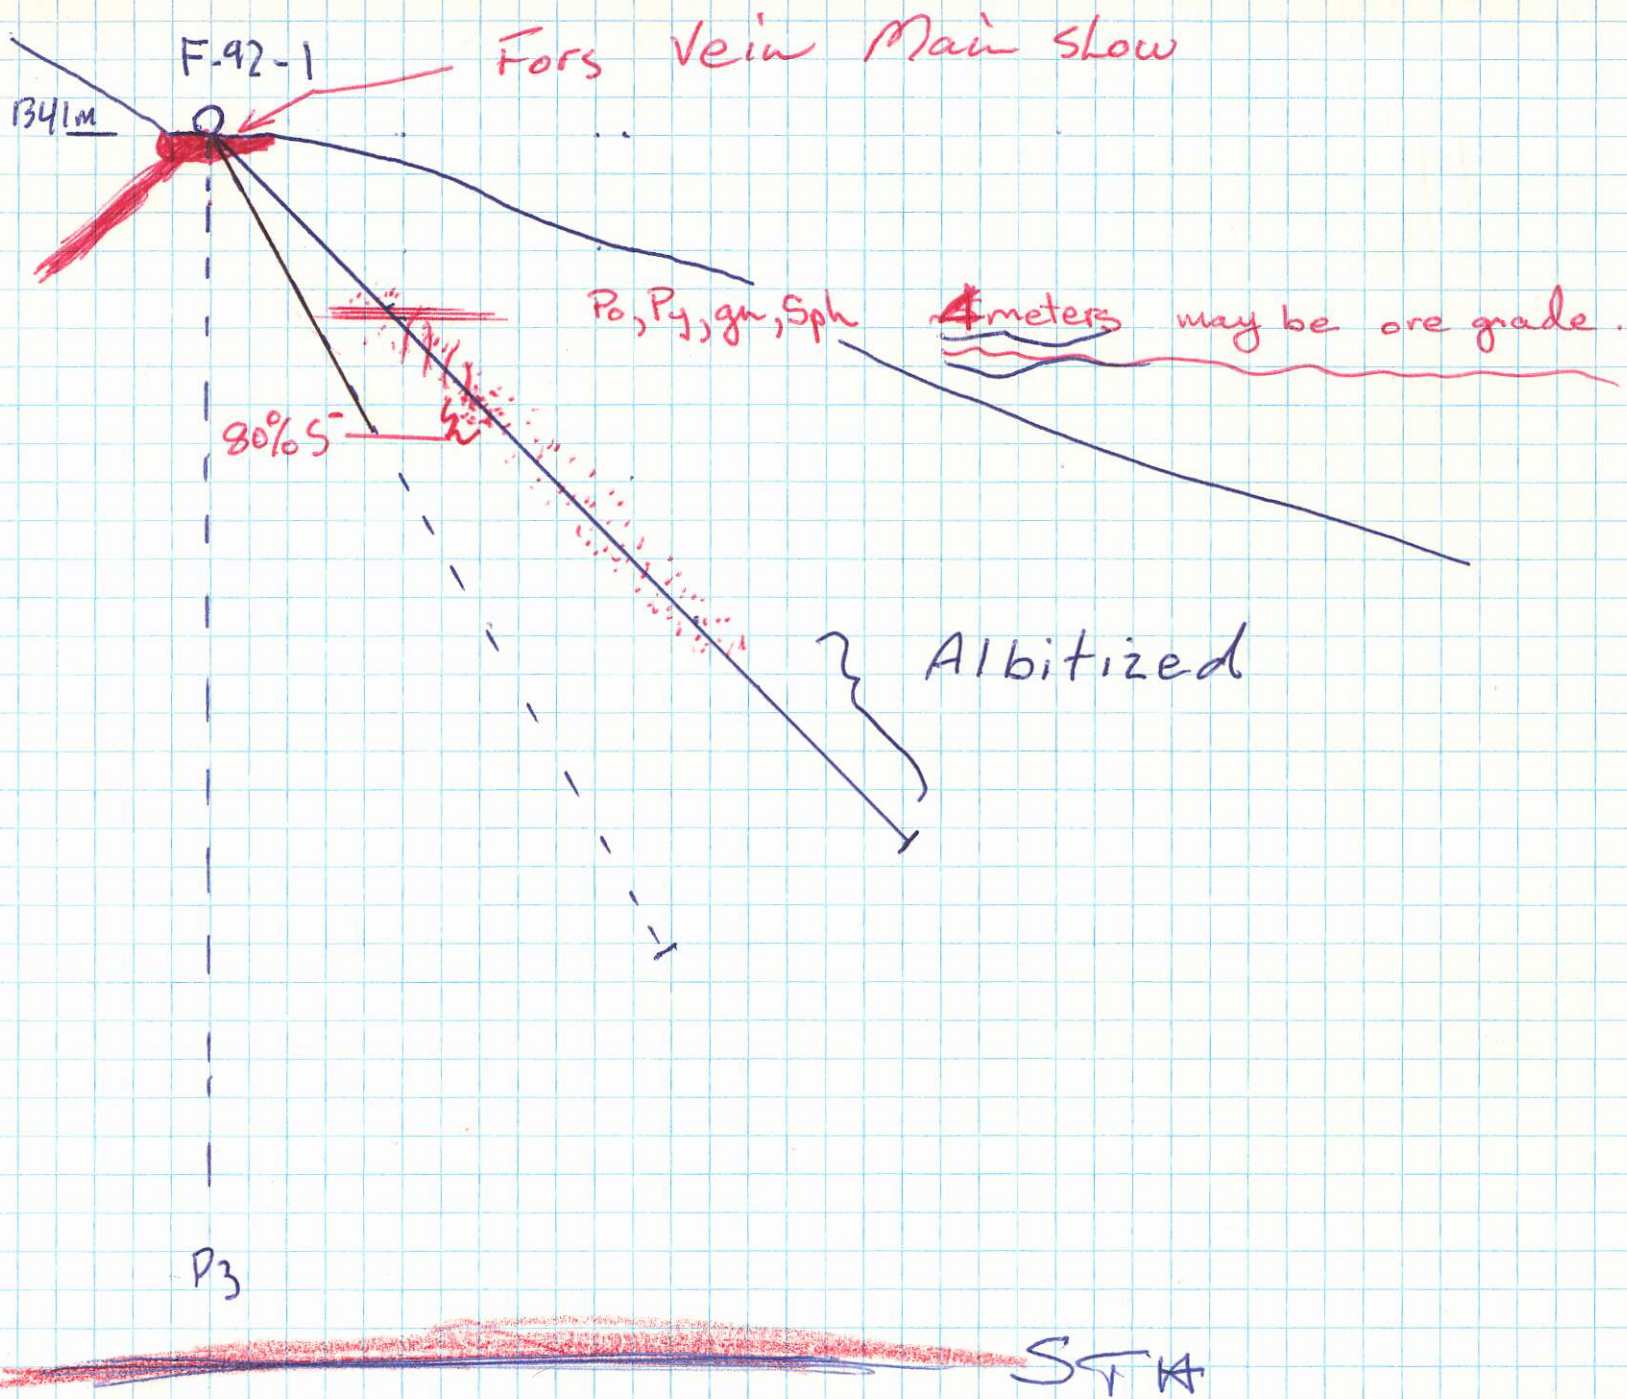 F-92-1
Fors Vein Main Show
1341m
Po, Py, gn, Sph 4 meters may be ore grade.
80% S⁻
Albitized
P3